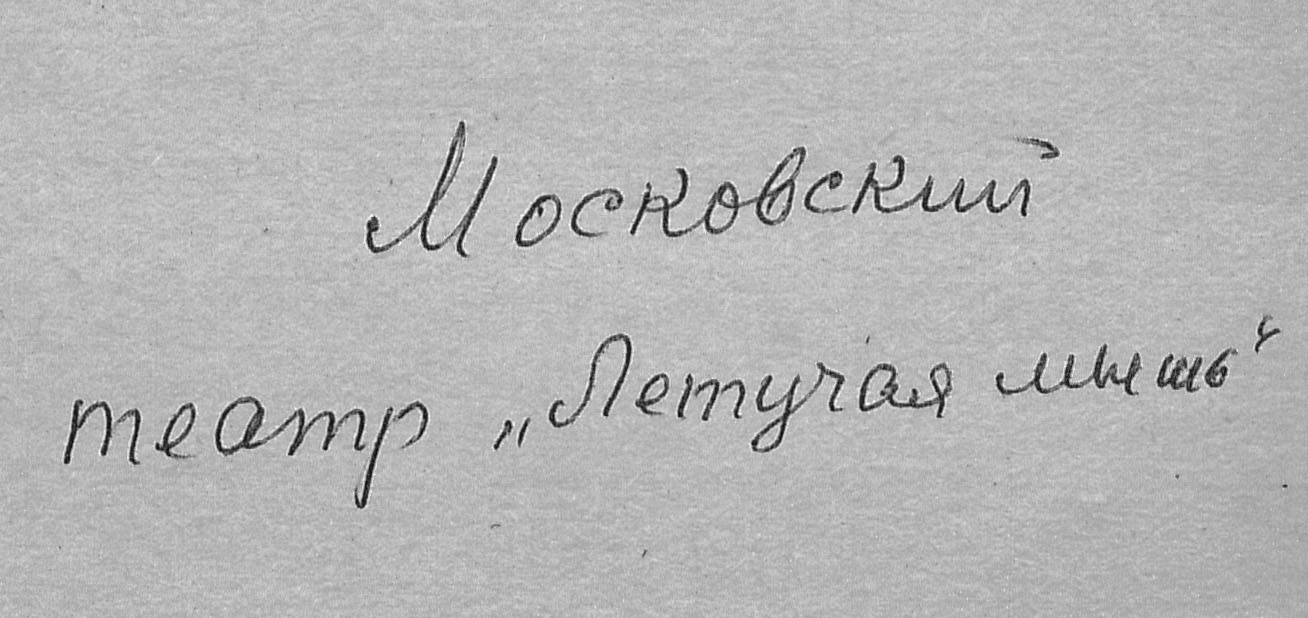 Московский
театр „Летучая мышь“